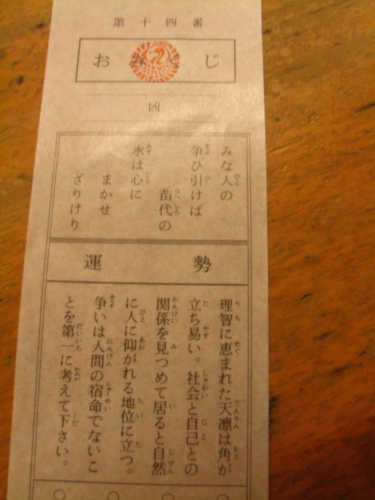 第十四番
おみくじ
凶
みな人の
争ひ引けば
苗代の
水は心に
まかせ
ざりけり
運勢
理智に恵まれた天凛は角が
立ち易い。社会と自己との
関係を見つめて居ると自然
に人に仰がれる地位に立つ。
争いは人間の宿命でないこ
とを第一に考えて下さい。